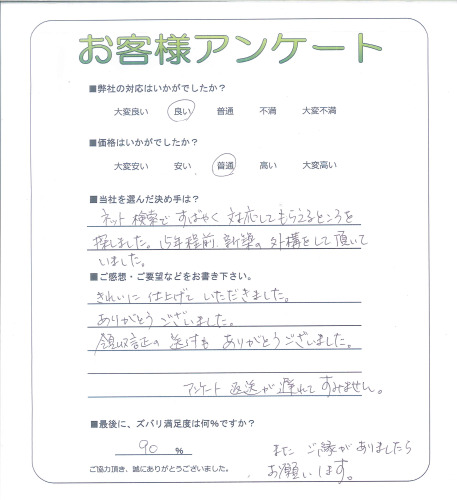 お客様アンケート
■弊社の対応はいかがでしたか？
大変良い 良い 普通 不満 大変不満
■価格はいかがでしたか？
大変安い 安い 普通 高い 大変高い
■当社を選んだ決め手は？
ネット検索ですばやく対応してもらえるところを
探しました。15年程前、新築の外構をして頂いて
いました。
■ご感想・ご要望などをお書き下さい。
きれいに仕上げていただきました。
ありがとうございました。
領収証の送付もありがとうございました。
アンケート返送が遅れてすみません。
■最後に、ズバリ満足度は何%ですか？
90 %
またご縁がありましたら
お願いします。
ご協力頂き、誠にありがとうございました。